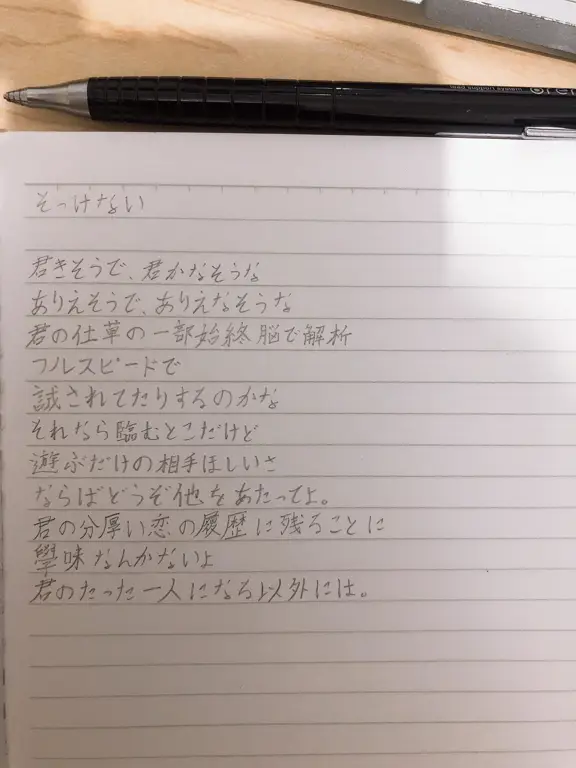 そっけない
君きそうで、君かなそうな
ありえそうで、ありえなそうな
君の仕草の一部始終脳で解析
フルスピードで
誠されてたりするのかな
それなら臨むとこだけど
遊ぶだけの相手ほしいさ
ならばどうぞ他をあたってよ。
君の分厚い恋の履歴に残ることに
學味なんかないよ
君のたった一人になる以外には。